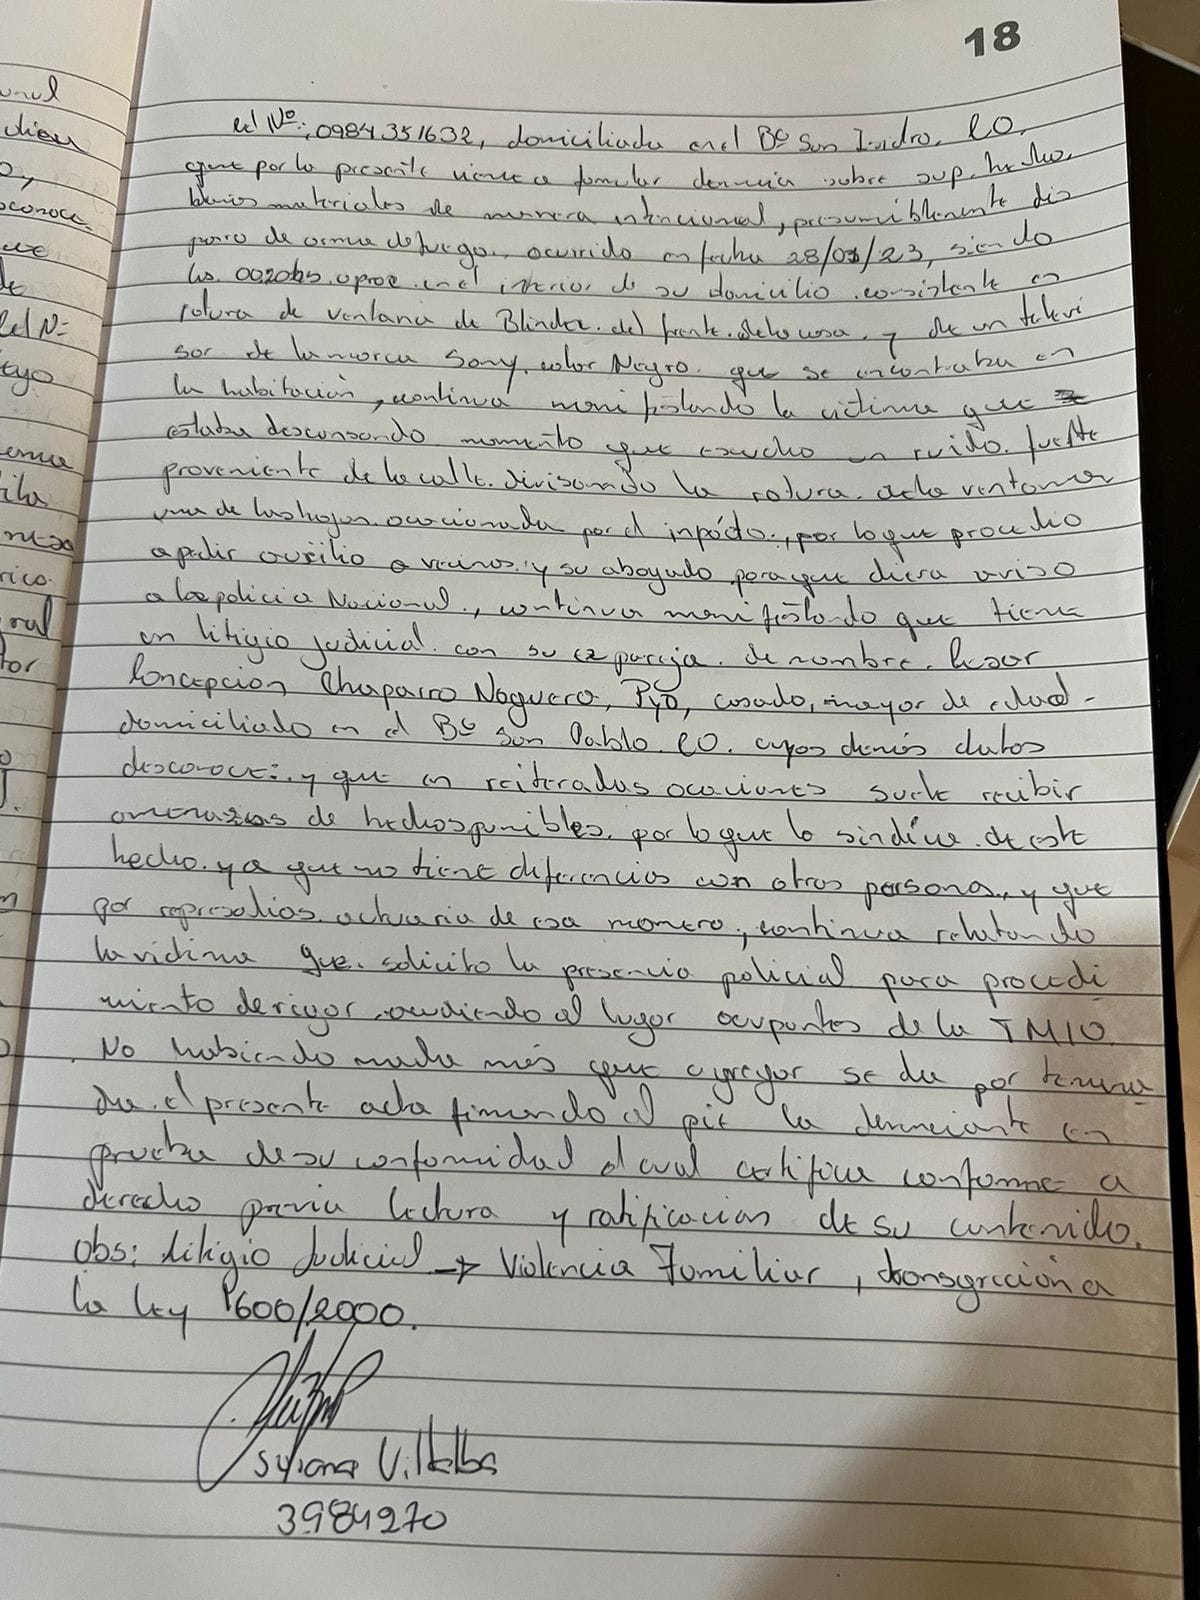 18
cel Nº: 0984351632, domiciliada en el Bº San Isidro. CO,
quien por la presente viene a formular denuncia sobre sup. hecho.
Daños materiales de manera intencional, presumiblemente dis
paro de arma de fuego, ocurrido en fecha 28/01/23, siendo
las 00:20hs. aprox. en el interior de su domicilio. consistente en
rotura de ventana de Blindex. del frente. de la casa. y de un televi
sor de la marca Sony, color Negro. que se encontraba en
la habitación, continua manifestando la victima que
estaba descansando momento que escucho un ruido. fuerte
proveniente de la calle. divisando la rotura. de la ventana
una de las hojas. ocacionada por el inpácto., por lo que procedio
a pedir auxilio a vecinos. y su abogado para que diera aviso
a la policia Nacional., continua manifestando que tiene
un litigio judicial. con su ex pareja. de nombre. Cesar
Concepcion Chaparro Noguera, Pyo, casado, mayor de edad -
domiciliado en el Bº San Pablo. CO. cuyos demás datos
desconoce:. y que en reiteradas ocaciones suele recibir
amenazas de hechos punibles. por lo que lo sindica. de este
hecho. ya que no tiene diferencias con otras persona., y que
por represalias. actuaria de esa manera, continua relatando
la victima que. solicito la presencia policial para procedi
miento de rigor. acudiendo al lugar ocupantes de la TM10.
. No habiendo nada más que agregar se da por termina
da. el presente acta firmando al pie la denunciante en
prueba de su conformidad el cual certifica conforme a
derecho previa lectura y ratificacion de su contenido.
Obs: litigio Judicial → Violencia Familiar, transgrecion a
la ley 1600/2000.
Silvana Villalba
3984270